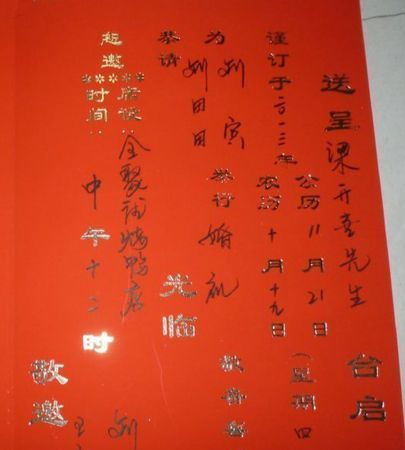 送呈梁开喜先生台启
公历11月21日（星期四
谨订于二〇一三年农历十月十九日
为刘寅
刘田田举行婚礼敬备
恭请光临
席设：全聚诚烤鸭店
恕邀
时间：中午十二时
刘
王
敬邀